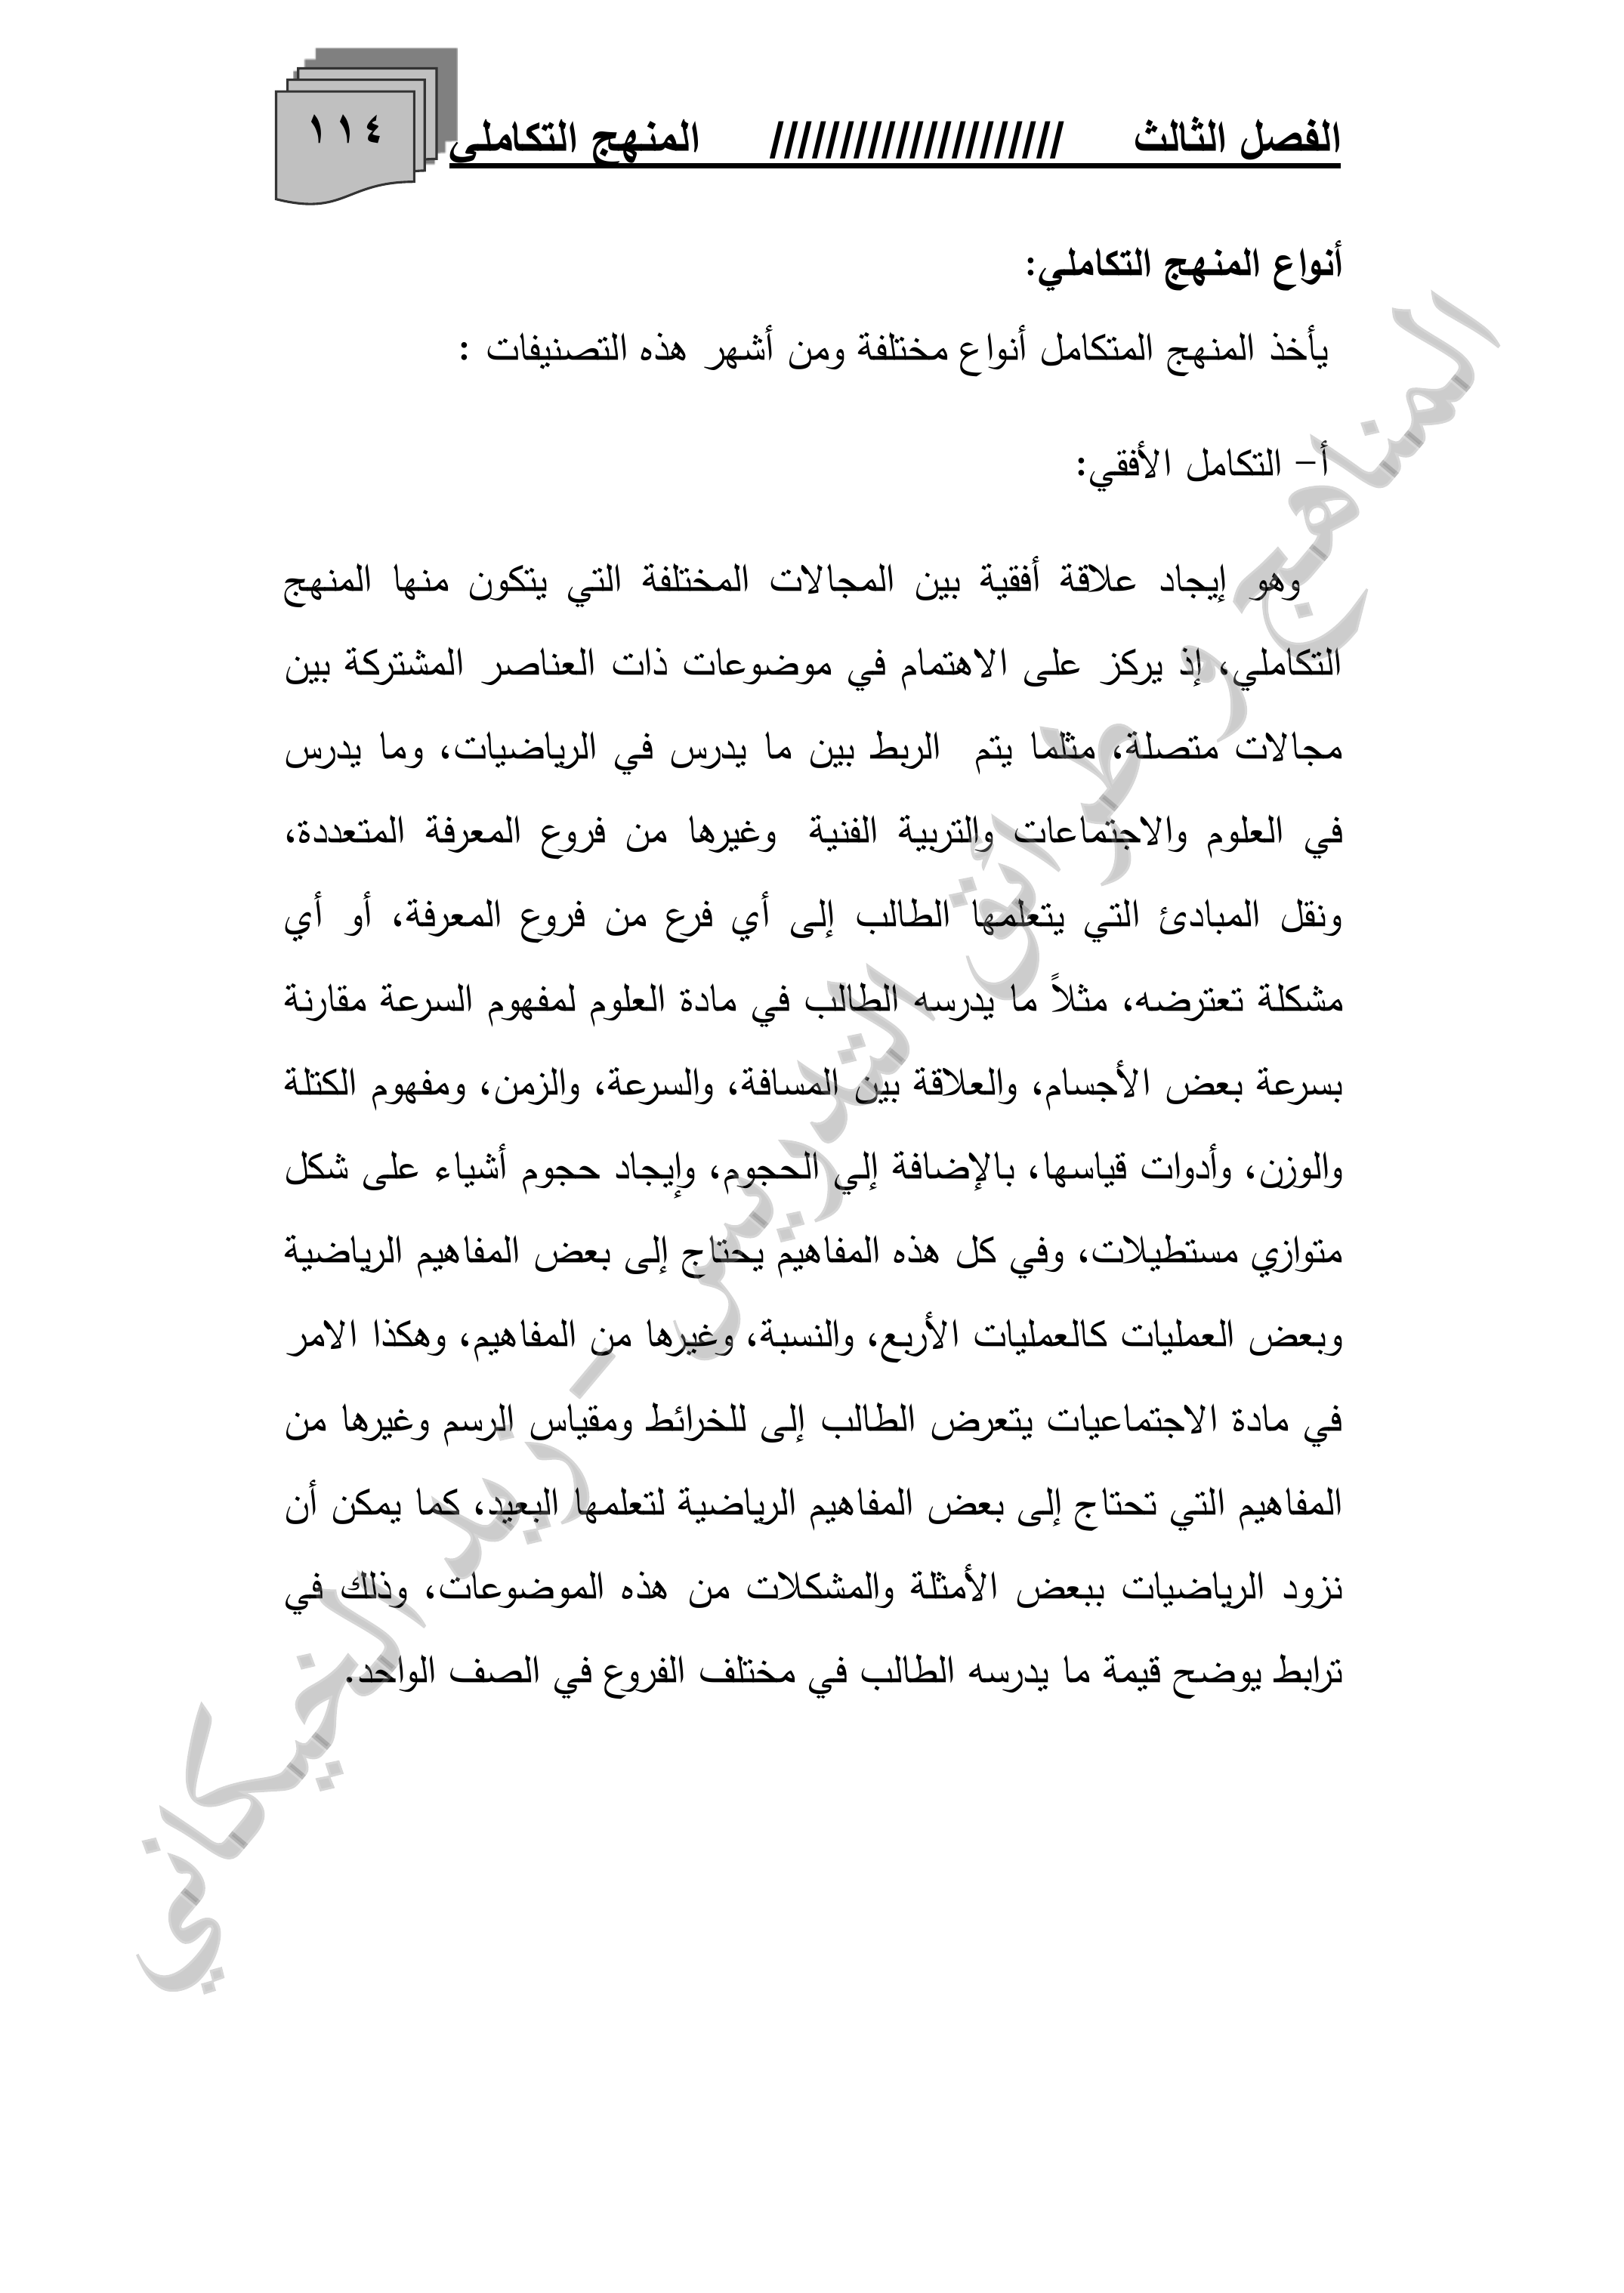 الفصل الثالث ///////////////////// المنهج التكاملي
١١٤
أنواع المنهج التكاملي:
يأخذ المنهج المتكامل أنواع مختلفة ومن أشهر هذه التصنيفات :
أ- التكامل الأفقي:
وهو إيجاد علاقة أفقية بين المجالات المختلفة التي يتكون منها المنهج
التكاملي، إذ يركز على الاهتمام في موضوعات ذات العناصر المشتركة بين
مجالات متصلة، مثلما يتم الربط بين ما يدرس في الرياضيات، وما يدرس
في العلوم والاجتماعات والتربية الفنية وغيرها من فروع المعرفة المتعددة،
ونقل المبادئ التي يتعلمها الطالب إلى أي فرع من فروع المعرفة، أو أي
مشكلة تعترضه، مثلاً ما يدرسه الطالب في مادة العلوم لمفهوم السرعة مقارنة
بسرعة بعض الأجسام، والعلاقة بين المسافة، والسرعة، والزمن، ومفهوم الكتلة
والوزن، وأدوات قياسها، بالإضافة إلي الحجوم، وإيجاد حجوم أشياء على شكل
متوازي مستطيلات، وفي كل هذه المفاهيم يحتاج إلى بعض المفاهيم الرياضية
وبعض العمليات كالعمليات الأربع، والنسبة، وغيرها من المفاهيم، وهكذا الامر
في مادة الاجتماعيات يتعرض الطالب إلى للخرائط ومقياس الرسم وغيرها من
المفاهيم التي تحتاج إلى بعض المفاهيم الرياضية لتعلمها البعيد، كما يمكن أن
نزود الرياضيات ببعض الأمثلة والمشكلات من هذه الموضوعات، وذلك في
ترابط يوضح قيمة ما يدرسه الطالب في مختلف الفروع في الصف الواحد.
المناهج و طرائق التدريس - زيد الخيكاني